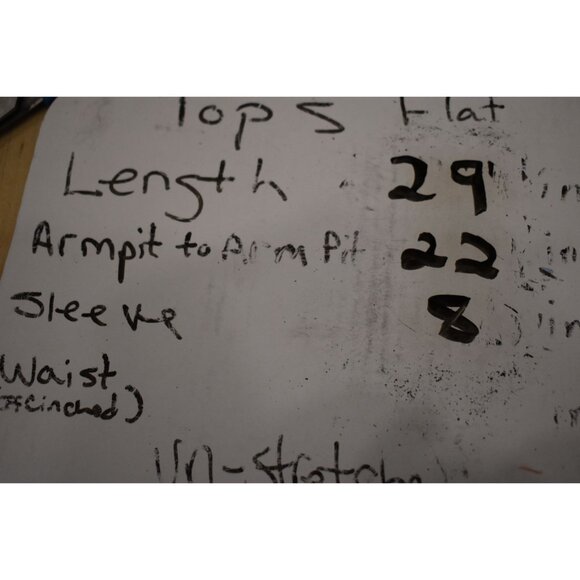 Tops Flat
Length 29" in
Armpit to Arm Pit 22 in
Sleeve 8 "in
Waist
if cinched)
Un-stretche